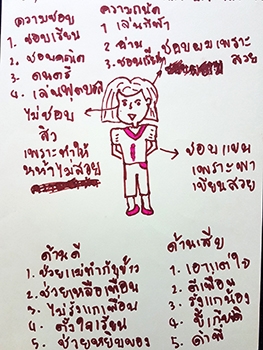 ความชอบ
1. ชอบเรียน
2. ชอบคณิต
3. ดนตรี
4. เล่นฟุตบอล
ความถนัด
1 เล่นกีฬา
2 อ่าน
3. ชอบเรียน
ชอบผมเพราะ
สวย
ไม่ชอบ
สิว
เพราะทำให้
หน้าไม่สวย
ชอบแขน
เพราะพา
เขียนสวย
ด้านดี
1. ช่วยแม่ทำกับข้าว
2. ช่วยเหลือเพื่อน
3. ไม่รังแกเพื่อน
4. ตั้งใจเรียน
5. ช่วยหยิบของ
ด้านเสีย
1. เอาแต่ใจ
2. ตีเพื่อน
3. รังแกน้อง
4. ขี้เกียจ
5. ด่าพี่